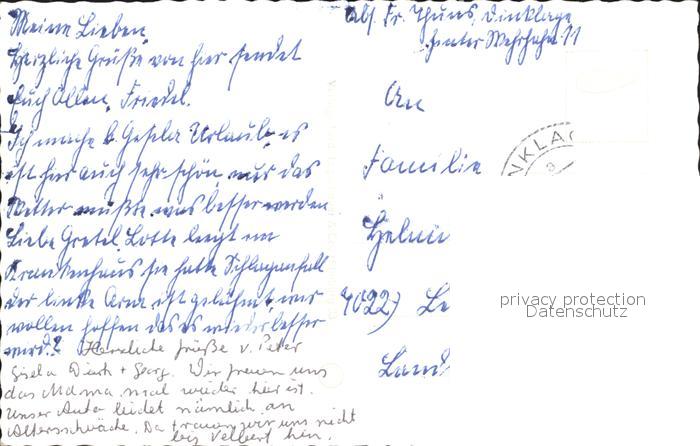 Meine Lieben,
Herzliche Grüße von hier sendet
Euch Allen, Friedel.
Ich mache b. Gisela Urlaub, es
ist hier auch sehr schön, nur das
Wetter müßte was besser werden
Liebe Gretel, Lotte liegt im
Krankenhaus sie hatte Schlaganfall
der linke Arm ist gelähmt, wir
wollen hoffen das es wieder besser
wird.? Herzliche Grüße v. Peter
Gisela Dierk + Georg. Wir freuen uns
das Mama mal wieder hier ist.
Unser Auto leidet nämlich an
Altersschwäche. Da trauen wir uns nicht
bis Velbert hin.
Abs. Fr. Thuns, Dinklage
hinter Mehrhafn 11
An
Familie
Helmu
4022) Le
Land
NKLAG
privacy protection
Datenschutz